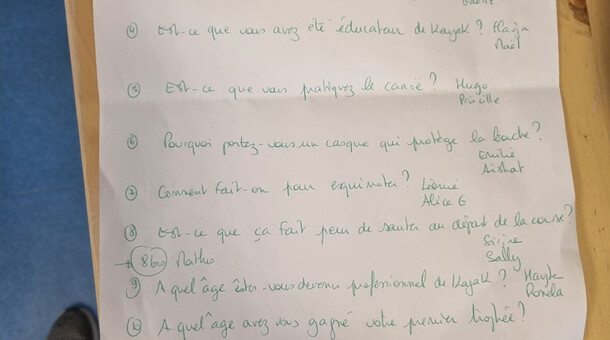 ④ Est-ce que vous avez été éducateur de Kayak ? Flavja
Maël
⑤ Est-ce que vous pratiquez le canoë ? Hugo
Priscille
⑥ Pourquoi portez-vous un casque qui protège la bouche ?
Emilie
Aishat
⑦ Comment fait-on pour esquimoter ? Léonie
Alice G
⑧ Est-ce que ça fait peur de sauter au départ de la course ?
Sirine
→ 8bis Mathis
Sally
⑨ A quel âge êtes-vous devenu professionnel de Kayak ?
Ronela
⑩ A quel âge avez vous gagné votre premier trophée ?